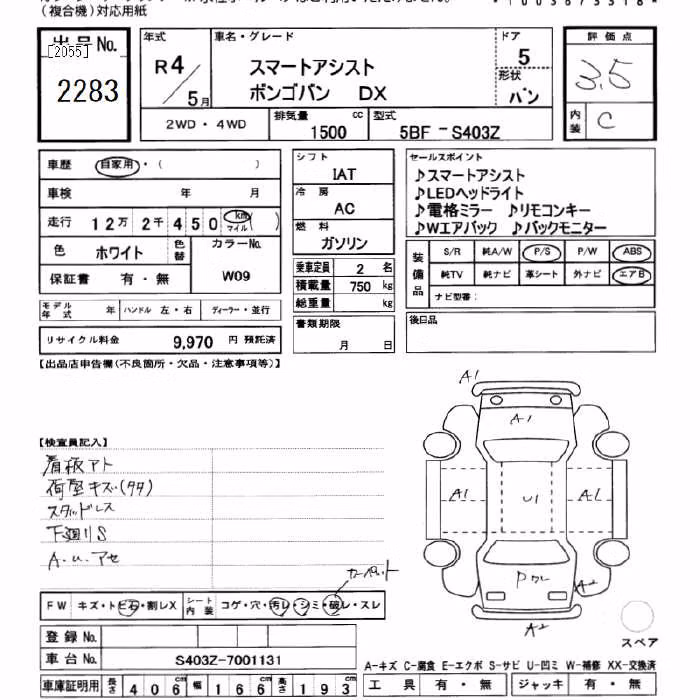 (複合機)対応用紙
出品No.
[2055]
2283
年式
R4/5月
車名・グレード
スマートアシスト
ボンゴバン DX
ドア
5
形状
バン
評価点
3.5
内装
C
2WD・4WD
排気量
1500
cc
型式
5BF-S403Z
車歴
自家用・( )
車検
年 月
走行
12万2千450
km
マイル
( )
色
ホワイト
色替
カラーNo.
W09
保証書
有・無
モデル年式
年
ハンドル 左・右
ディーラー・並行
リサイクル料金
9,970 円 預託済
シフト
IAT
冷房
AC
燃料
ガソリン
乗車定員 2 名
積載量 750 kg
総重量 kg
書類期限
月 日
セールスポイント
♪スマートアシスト
♪LEDヘッドライト
♪電格ミラー ♪リモコンキー
♪Wエアバック ♪バックモニター
装備品
S/R 純A/W P/S P/W ABS
純TV 純ナビ 革シート 外ナビ エアB
ナビ型番:
後日品
【出品店申告欄(不良箇所・欠品・注意事項等)】
【検査員記入】
看板アト
荷室キズ(タタ)
スタッドレス
下廻りS
A.u.アセ
カーペット
FW
キズ・トビ石・割レX
シート内装
コゲ・穴・汚レ・シミ・破レ・スレ
登録No.
車台No.
S403Z-7001131
車庫証明用
長さ 406 cm
幅 166 cm
高さ 193 cm
A1
A1
A1
U1
A1
A2
A2
スペア
A-キズ C-腐食 E-エクボ S-サビ U-凹ミ W-補修 XX-交換済
工具 有・無
ジャッキ 有・無